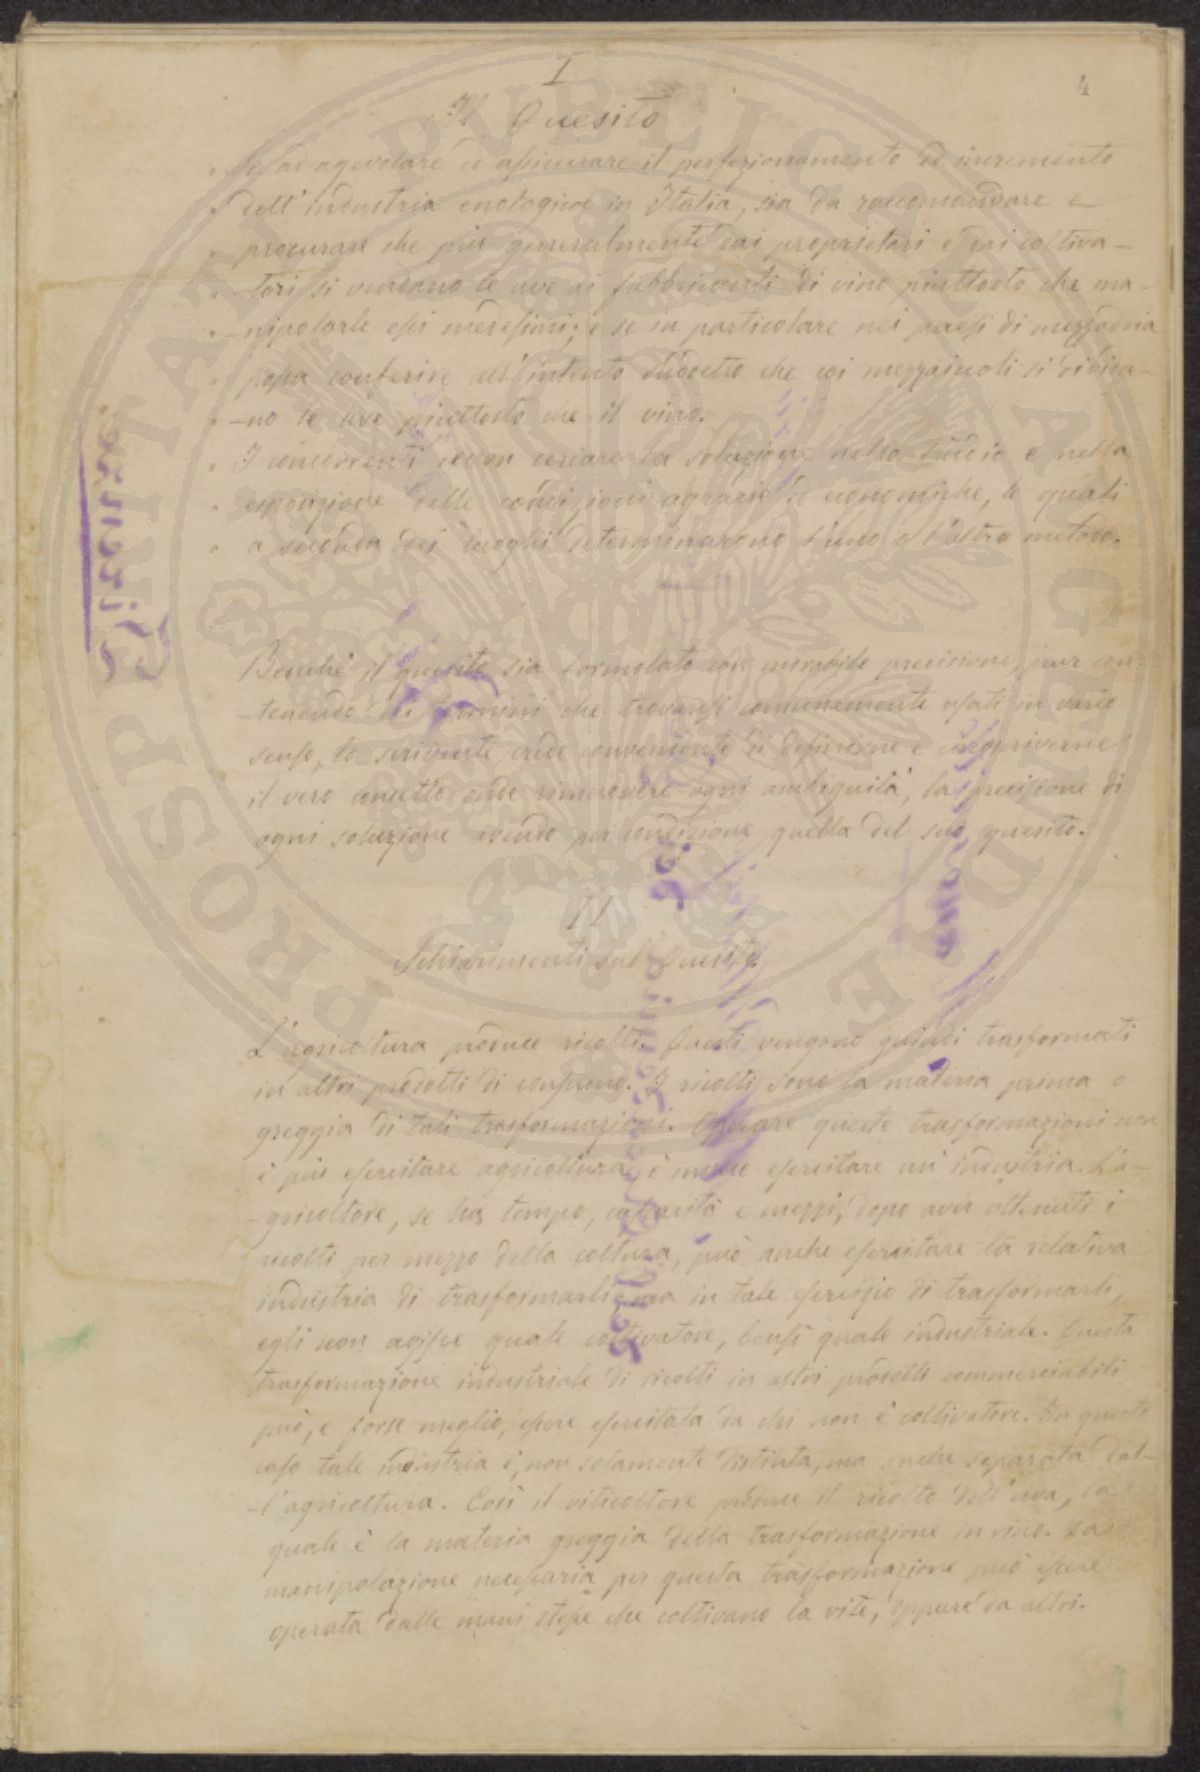 I
4
Il Quesito
" Se ad agevolare ed assicurare il perfezionamento ed incremento
" dell'industria enologica in Italia, sia da raccomandare e
" procurare che più generalmente dai proprietari e dai coltiva-
" -tori si vendano le uve ai fabbricanti di vino piuttosto che ma-
" -nipolarle essi medesimi; e se in particolare nei paesi di mezzadria
" possa conferire all'intento suddetto che coi mezzaiuoli si divida-
" -no le uve piuttosto che il vino.
" I concorrenti devon cercare la soluzione nello studio e nella
" esposizione delle condizioni agrarie ed economiche, le quali
" a seconda dei luoghi determinarono l'uno o l'altro metodo.
Benché il quesito sia formolato con mirabile precisione, pur con-
-tenendo dei termini che trovansi comunemente usati in vario
senso, lo scrivente crede conveniente di definirne e circoscriverne
il vero concetto onde rimuovere ogni ambiguità, la precisione di
ogni soluzione avendo per condizione quella del suo quesito.
II
Schiarimenti sul Quesito
L'agricoltura produce ricolti. Questi vengono quindi trasformati
in altri prodotti di consumo. I ricolti sono la materia prima o
greggia di tali trasformazioni. Operare queste trasformazioni non
è più esercitare agricoltura, è invece esercitare un'industria. L'a-
-gricoltore, se ha tempo, capacità e mezzi, dopo aver ottenuti i
ricolti per mezzo della coltura, può anche esercitare la relativa
industria di trasformarli; ma in tale esercizio di trasformarli,
egli non agisce quale coltivatore, bensì quale industriale. Questa
trasformazione industriale di ricolti in altri prodotti commerciabili
può, e forse meglio, essere esercitata da chi non è coltivatore. In questo
caso tale industria è, non solamente distinta, ma anche separata dal-
-l'agricoltura. Così il viticoltore produce il ricolto dell'uva, la
quale è la materia greggia della trasformazione in vino. La
manipolazione necessaria per questa trasformazione può essere
operata dalle mani stesse che coltivano la vite, oppure da altri.
Firenze
PROSPERITATI PUBLICAE AUGENDAE